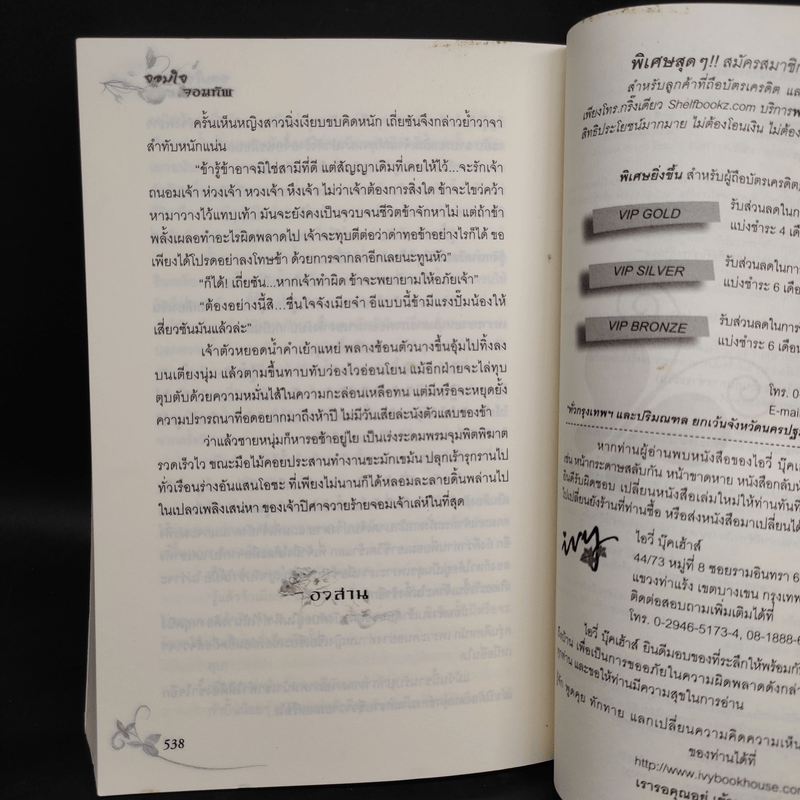 จอมใจ
จอมทัพ
ครั้นเห็นหญิงสาวนิ่งเงียบขบคิดหนัก เถี่ยซันจึงกล่าวย้ำวาจา
สำทับหนักแน่น
“ข้ารู้ข้าอาจมิใช่สามีที่ดี แต่สัญญาเดิมที่เคยให้ไว้...จะรักเจ้า
ถนอมเจ้า ห่วงเจ้า หวงเจ้า หึงเจ้า ไม่ว่าเจ้าต้องการสิ่งใด ข้าจะไขว่คว้า
หามาวางไว้แทบเท้า มันจะยังคงเป็นจวบจนชีวิตข้าจักหาไม่ แต่ถ้าข้า
พลั้งเผลอทำอะไรผิดพลาดไป เจ้าจะทุบตีต่อว่าด่าทอข้าอย่างไรก็ได้ ขอ
เพียงได้โปรดอย่าลงโทษข้า ด้วยการจากลาอีกเลยนะทูนหัว”
“ก็ได้! เถี่ยซัน...หากเจ้าทำผิด ข้าจะพยายามให้อภัยเจ้า”
“ต้องอย่างนี้สิ...ชื่นใจจังเมียจ๋า อีแบบนี้ข้ามีแรงปั๊มน้องให้
เสี่ยวซันมันแล้วล่ะ”
เจ้าตัวหยอดน้ำคำเย้าแหย่ พลางช้อนตัวนางขึ้นอุ้มไปทิ้งลง
บนเตียงนุ่ม แล้วตามขึ้นทาบทับว่องไวอ่อนโยน แม้อีกฝ่ายจะไล่ทุบ
ตุบตับด้วยความหมั่นไส้ในความกะล่อนเหลือทน แต่มีหรือจะหยุดยั้ง
ความปรารถนาที่อดอยากมาถึงห้าปี ไม่มีวันเสียล่ะนังตัวแสบของข้า
ว่าแล้วชายหนุ่มก็หารอช้าอยู่ไย เป็นเร่งระดมพรมจุมพิตพิฆาต
รวดเร็วไว ขณะมือไม้คอยประสานทำงานขะมักเขม้น ปลุกเร้ารุกรานไป
ทั่วเรือนร่างอันแสนโอชะ ที่เพียงไม่นานก็ได้หลอมละลายดิ้นพล่านไป
ในเปลวเพลิงเสน่หา ของเจ้าปีศาจวายร้ายจอมเจ้าเล่ห์ในที่สุด
อวสาน
538
พิเศษสุดๆ!! สมัครสมาชิก
สำหรับลูกค้าที่ถือบัตรเครดิต
เพียงโทร.กริ๊งเดียว Shelfbookz.com บริการ
สิทธิประโยชน์มากมาย ไม่ต้องโอนเงิน ไม่ต้อง
พิเศษยิ่งขึ้น สำหรับผู้ถือบัตรเครดิต
VIP GOLD
รับส่วนลดในการ
แบ่งชำระ 4 เดือ
VIP SILVER
รับส่วนลดในการ
แบ่งชำระ 6 เดือ
VIP BRONZE
รับส่วนลดในการ
แบ่งชำระ 6 เดือน
โทร. 0
E-mai
*ทั่วกรุงเทพฯ และปริมณฑล ยกเว้นจังหวัดนครปฐม
หากท่านผู้อ่านพบหนังสือของไอวี่ บุ๊ค
เช่น หน้ากระดาษสลับกัน หน้าขาดหาย หนังสือกลับหัว
ยินดีรับผิดชอบ เปลี่ยนหนังสือเล่มใหม่ให้ท่านทันที
ไปเปลี่ยนยังร้านที่ท่านซื้อ หรือส่งหนังสือมาเปลี่ยนได้
ivy
ไอวี่ บุ๊คเฮ้าส์
44/73 หมู่ที่ 8 ซอยรามอินทรา 6
แขวงท่าแร้ง เขตบางเขน กรุงเทพ
ติดต่อสอบถามเพิ่มเติมได้ที่
โทร. 0-2946-5173-4, 08-1888-6
ไอวี่ บุ๊คเฮ้าส์ ยินดีมอบของที่ระลึกให้พร้อม
เพื่อเป็นการขออภัยในความผิดพลาดดังกล่าว
และขอให้ท่านมีความสุขในการอ่าน
พูดคุย ทักทาย แลกเปลี่ยนความคิดความเห็น
ของท่านได้ที่
http://www.ivybookhouse.com
เรารอคุณอยู่